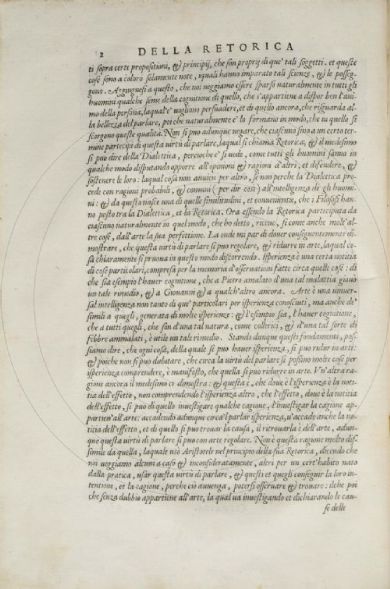 2 DELLA RETORICA
ti sopra certe propositioni, & principij, che son proprij di que' tali soggetti. et queste
cose sono a coloro solamente note, i quali hanno imparato tali scienze, & le posseg-
gono. Aggiungesi a questo, che noi ueggiamo essere sparsi naturalmente in tutti gli
huomini qualche seme della cognitione di quello, che s'appartiene a dispor ben l'ani-
mo della persona, laqual'è uogliamo persuadere, et di quello ancora, che risguarda al-
la bellezza del parlare, poiche naturalmente è la formano in modo, che in quello si
scorgono queste qualità. Non si può adunque negare, che ciascuno sino a un certo ter-
mine partecipi di questa virtù di parlare, laqual si chiama Retorica, & il medesimo
si può dire della Dialettica, percioche si uede, come tutti gli huomini sanno in
qualche modo disputando opporre all'openione & ragioni d'altri, et difendere, &
sostenere le loro: laqual cosa non auuien per altro, se non perche la Dialettica pro-
cede con ragioni probabili, & communi (per dir così) all'intelligenza de gli huomi-
ni: & da questo nasce una di quelle similitudini, et conuenienze, che i Filosofi han-
no posto tra la Dialettica, et la Retorica. Ora essendo la Retorica participata da
ciascuno naturalmente in quel modo, che ho detto, riceue, si come anche molt'al-
tre cose, dall'arte la sua perfettione. La onde mi par di douer conseguentemente di-
mostrare, che questa virtù di parlare si può regolare, & ridurre in arte, laqual co-
sa chiaramente si proua in questo modo discorrendo. Isperienza è una certa notitia
di cose particolari, compresa per la memoria d'osseruationi fatte circa quelle cose: di
che sia essempio l'hauer cognitione, che a Pietro amalato d'una tal malattia giouò
un tale rimedio, & a Giouanni & a qualch'altro ancora. Arte è una uniuer-
sal intelligenza non tanto di que' particolari per isperienza conosciuti, ma anche de'
simili a quegli, generata di molte isperienze: & l'essempio sia, l'hauer cognitione,
che a tutti quegli, che sian d'una tal natura, come colerici, & d'una tal sorte di
febbre ammalati, è utile un tale rimedio. Stando dunque questo fondamento, pos-
siamo dire, che ogni cosa, della quale si può hauer isperienza, si può ridur in arte.
& poiche non si può dubitare, che circa la virtù del parlare si possano molte cose per
isperienza comprendere, è manifesto, che quella si può ridurre in arte. Vn'altra ra-
gione ancora il medesimo ci dimostra: & questa è, che doue è l'isperienza è la noti-
tia dell'effetto, non comprendendo l'isperienza altro, che l'effetto, doue è la notitia
dell'effetto, si può di quello inuestigare qualche cagione, l'inuestigar la cagione ap-
partien' all'arte: accadendo adunque circa'l parlar isperienza, u'accade anche la no-
titia dell'effetto, et di quello si può trouar la causa, il ritrouarla è dell'arte, adun-
que questa virtù di parlar si può con arte regolare. Non è questa ragione molto dis-
simile da quella, laquale usò Aristotele nel principio della sua Retorica, dicendo che
noi ueggiamo alcuni a caso & inconsideratamente, altri per un cert'habito nato
dalla pratica, usar questa virtù di parlare, & questi et quegli conseguir la loro in-
tentione, et la cagione, perche ciò auuenga, potersi osseruare & trouare: ilche poi
che senza dubbio appartiene all'arte, la qual ua inuestigando et dichiarando le cau-
se delle